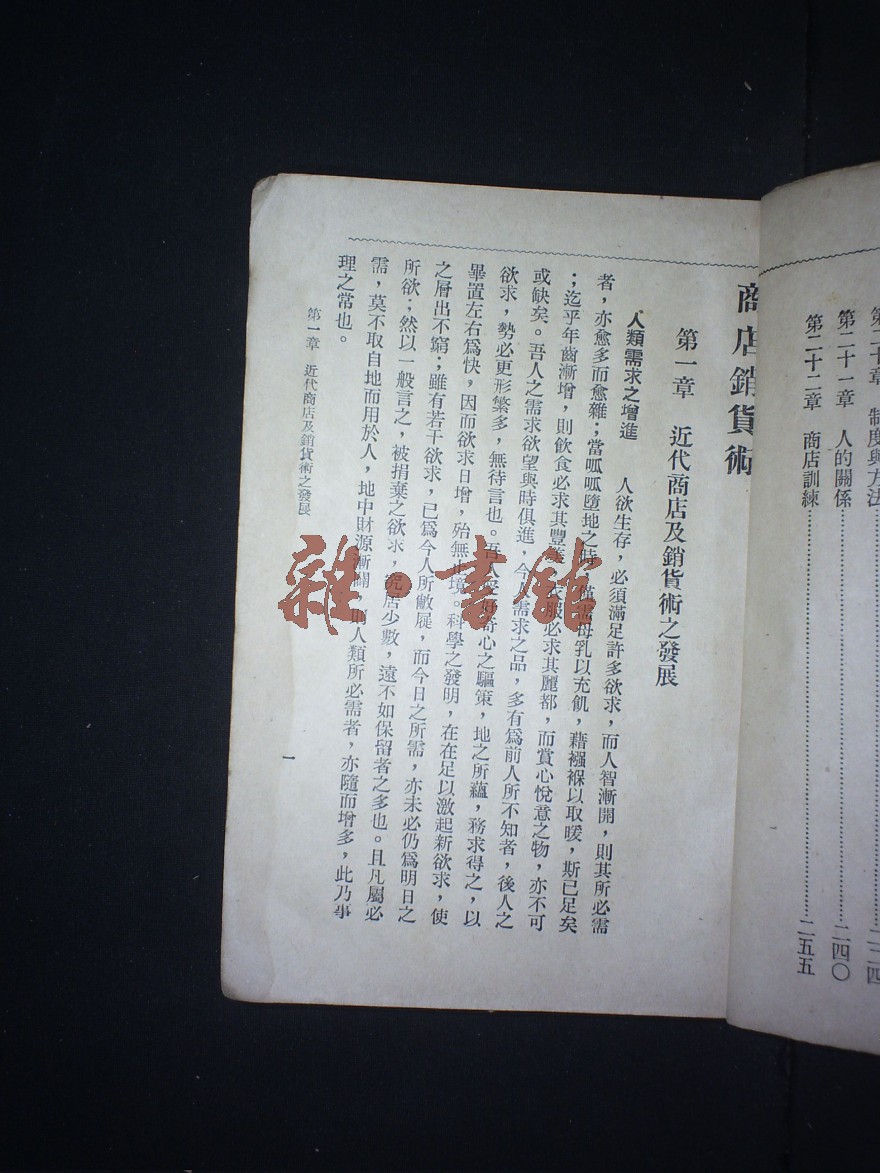 第二十一章　人的關係………二四〇
第二十二章　商店訓練………二五五
商店銷貨術
第一章　近代商店及銷貨術之發展
人類需求之增進　人欲生存，必須滿足許多欲求，而人智漸開，則其所必需
者，亦愈多而愈雜；當呱呱墮地之時，僅需母乳以充飢，藉襁褓以取暖，斯已足矣
；迄乎年齒漸增，則飲食必求其豐美，衣服必求其麗都，而賞心悅意之物，亦不可
或缺矣。吾人之需求欲望與時俱進，今人需求之品，多有爲前人所不知者，後人之
欲求，勢必更形繁多，無待言也。吾人受好奇心之驅策，地之所蘊，務求得之，以
畢置左右爲快，因而欲求日增，殆無止境。科學之發明，在在足以激起新欲求，使
之層出不窮；雖有若干欲求，已爲今人所敝屣，而今日之所需，亦未必仍爲明日之
所欲；然以一般言之，被捐棄之欲求，究居少數，遠不如保留者之多也。且凡屬必
需，莫不取自地而用於人，地中財源漸闢，則人類所必需者，亦隨而增多，此乃事
理之常也。
第一章　近代商店及銷貨術之發展
一
雜·書館